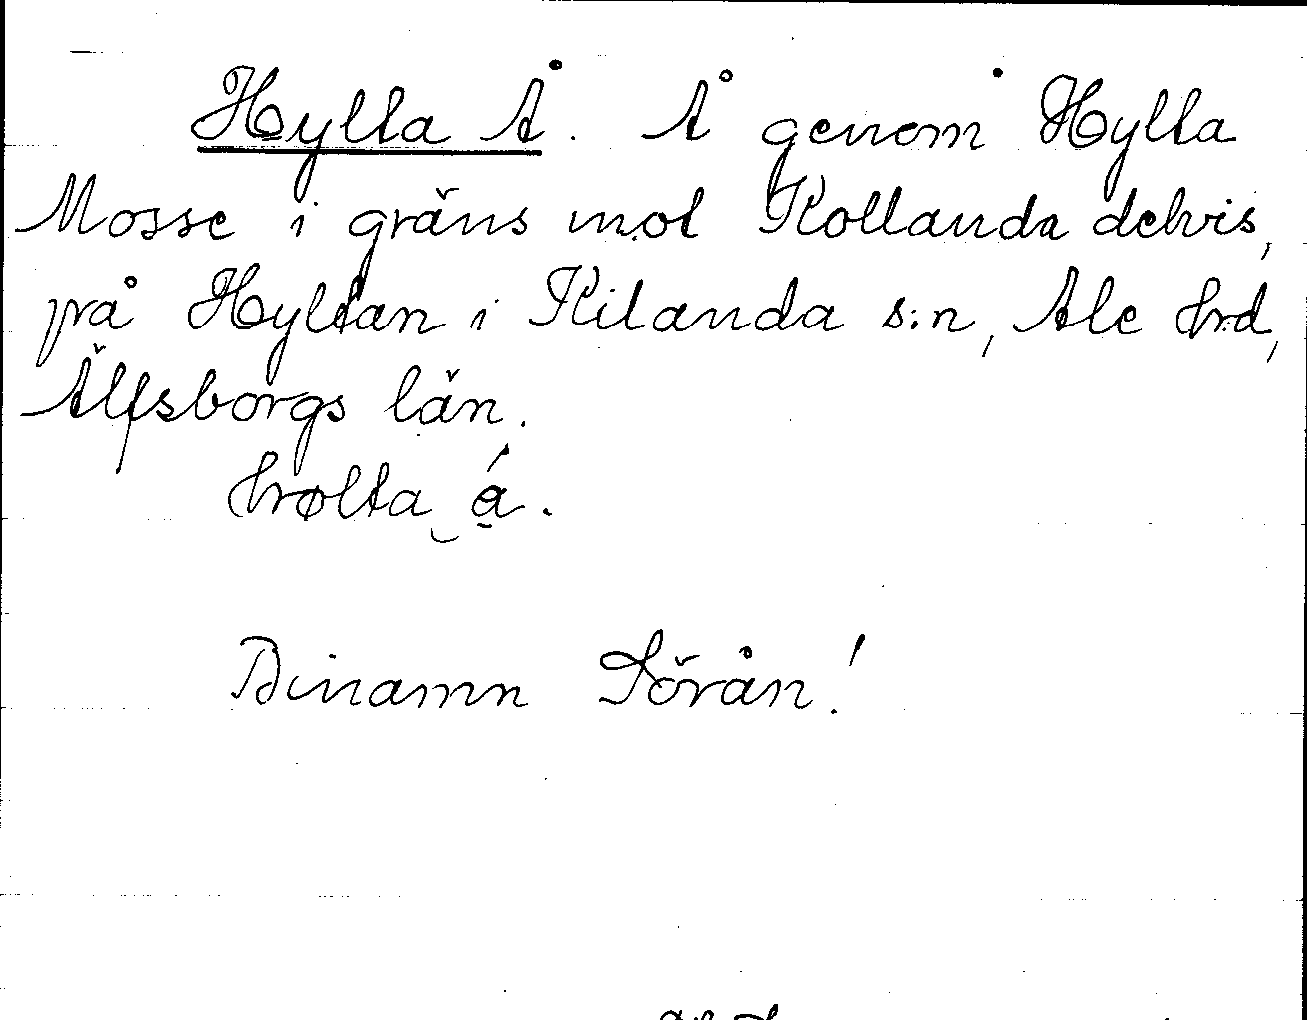 Hylta Å. Å genom Hylta
Mosse i gräns mot Kollanda delvis,
på Hyltan i Kilanda s:n, Ale hrd,
Älfsborgs län.
hølta‿á̱.
Binamn Sörån!